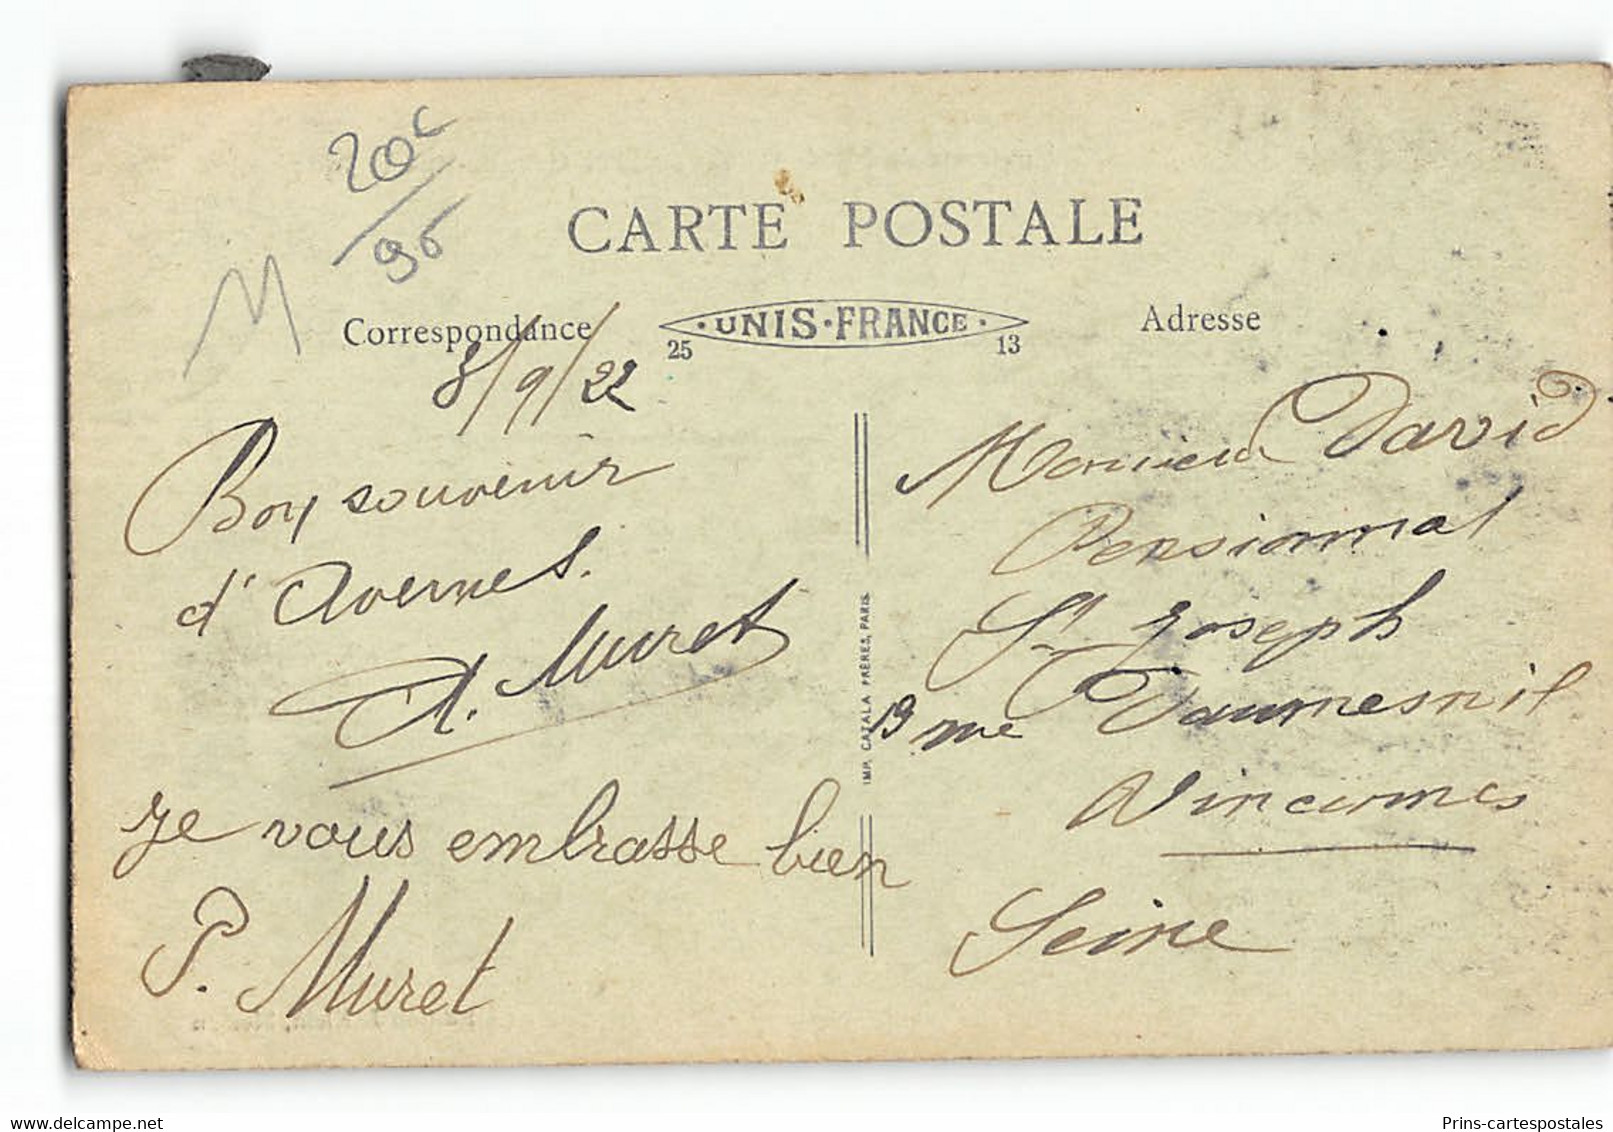 20c
96
M
CARTE POSTALE
Correspondance
· UNIS · FRANCE ·
25 13
Adresse
8/9/22
Bon souvenir
d'Avernes.
A. Muret
je vous embrasse bien
P. Muret
IMP. CATALA FRÈRES, PARIS
Monsieur David
Pensionnat
St Joseph
19 rue Daumesnil
Vincennes
Seine
delcampe.net
Prins-cartespostales